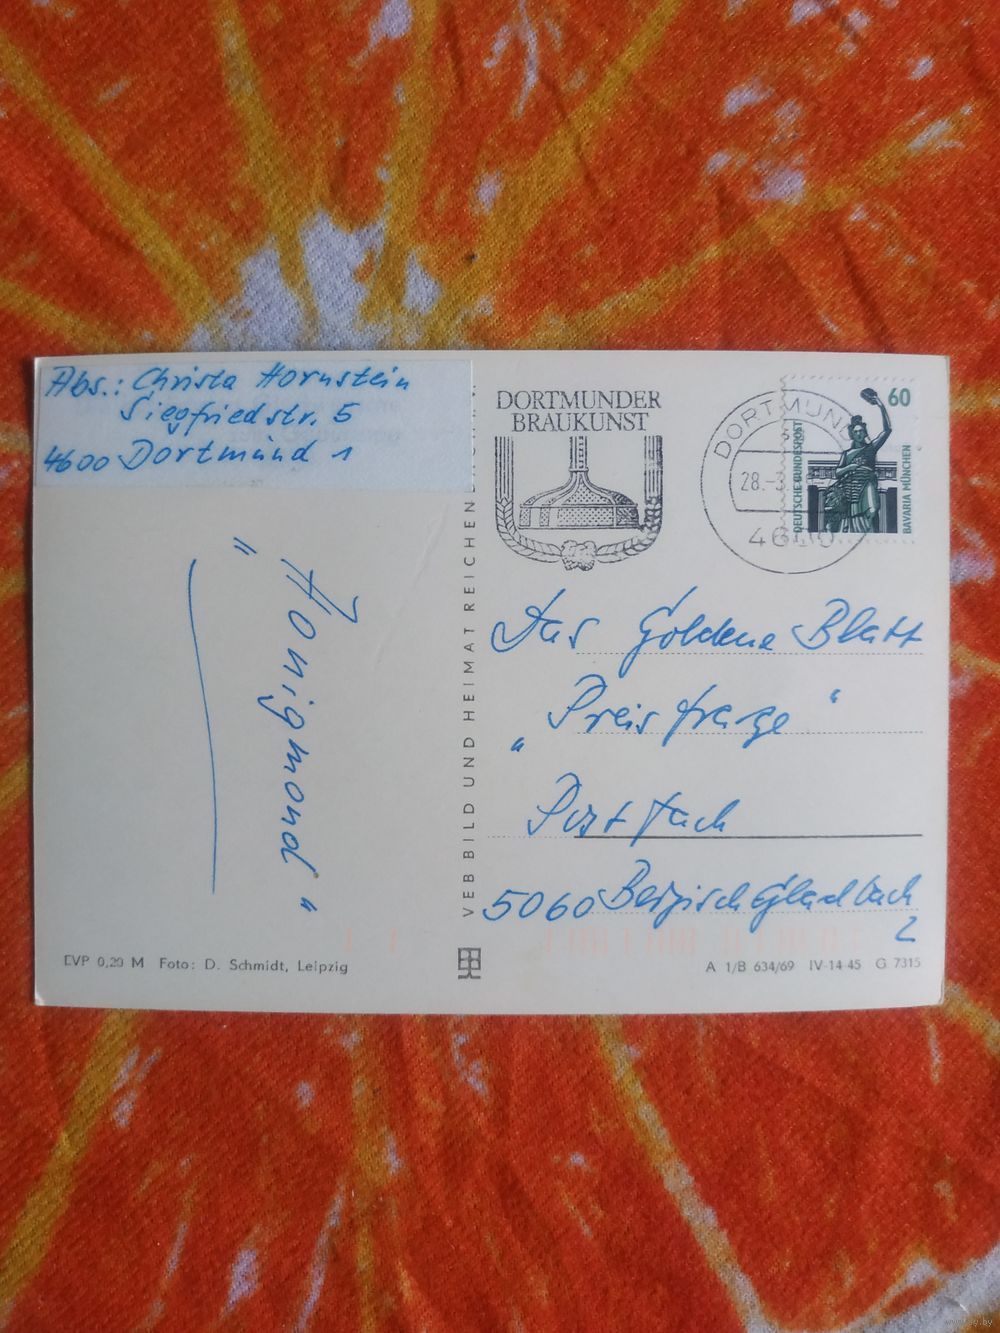 Abs.: Christa Hornstein
Siegfriedstr. 5
4600 Dortmund 1
"Honigmond"
VEB BILD UND HEIMAT REICHEN
DORTMUNDER
BRAUKUNST
DORTMUND
28.-3.
4600
60
DEUTSCHE BUNDESPOST
BAVARIA MÜNCHEN
Das Goldene Blatt
"Preisfrage"
Postfach
5060 Bergisch Gladbach
2
EVP 0,20 M Foto: D. Schmidt, Leipzig
A 1/B 634/69 IV-14-45 G 7315